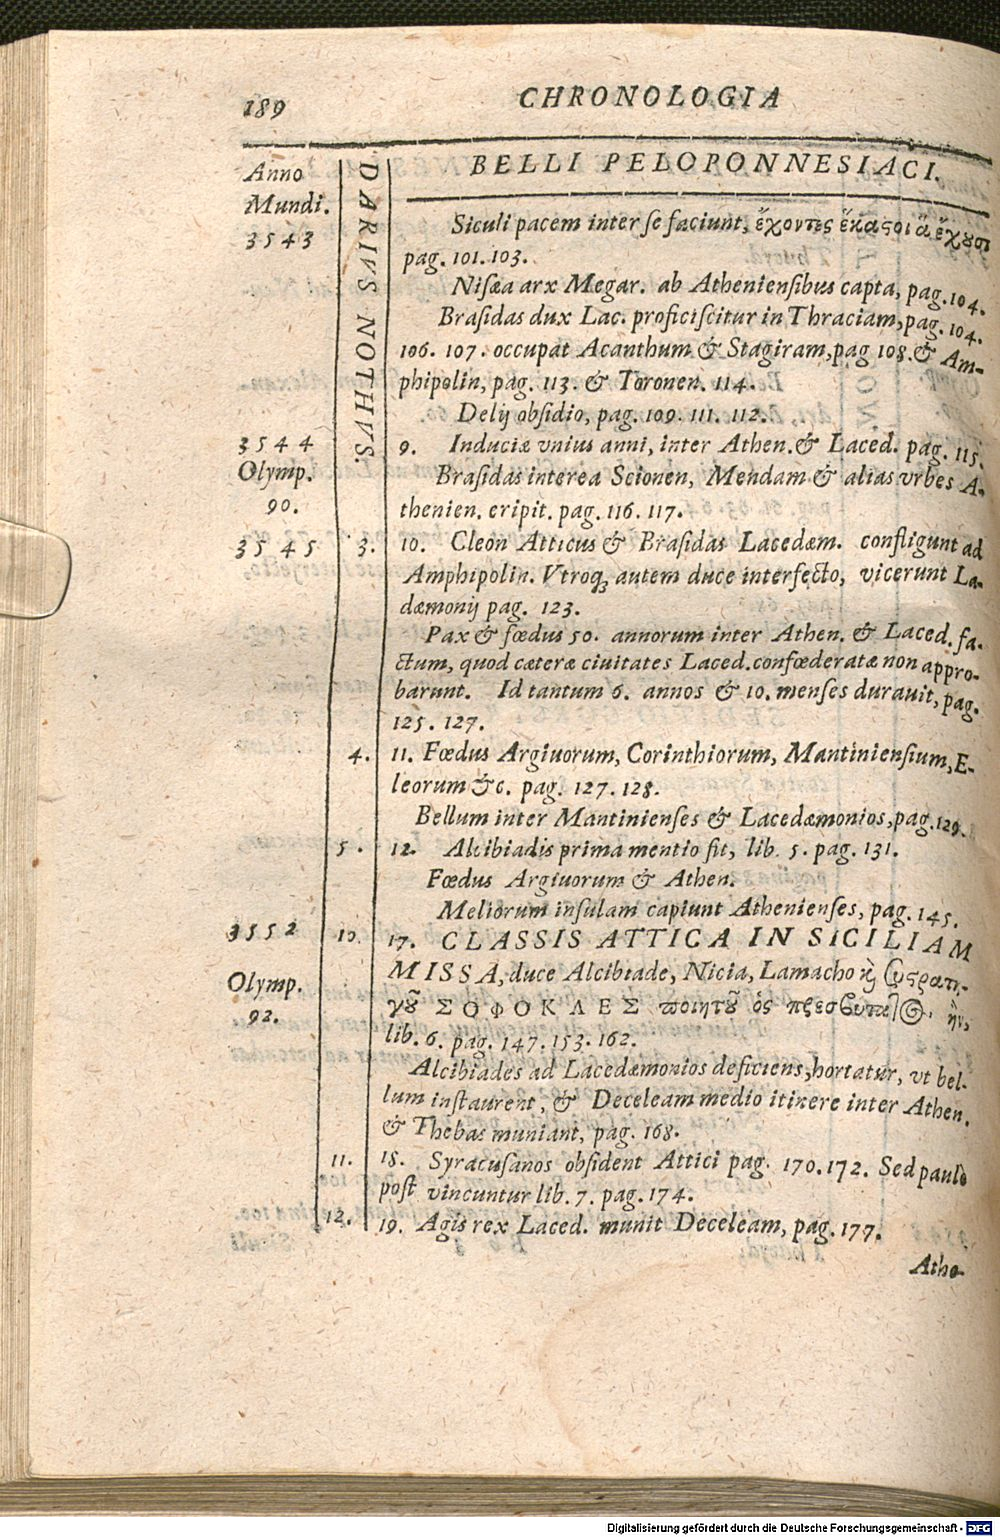 189 CHRONOLOGIA
Anno
Mundi.
3543
DARIVS NOTHVS.
BELLI PELOPONNESIACI.
Siculi pacem inter se faciunt, ἔχοντες ἕκαϛοι ἃ ἔχουσι
pag. 101. 103.
Nisæa arx Megar. ab Atheniensibus capta, pag. 104.
Brasidas dux Lac. proficiscitur in Thraciam, pag. 104.
106. 107. occupat Acanthum & Stagiram, pag 108. & Am-
phipolin, pag. 113. & Toronen. 114.
Delij obsidio, pag. 109. 111. 112.
3544 9. Induciæ vnius anni, inter Athen. & Laced. pag. 115.
Olymp. Brasidas interea Scionen, Mendam & alias vrbes A-
90. thenien. eripit. pag. 116. 117.
3545 3. 10. Cleon Atticus & Brasidas Lacedæm. confligunt ad
Amphipolin. Vtroq; autem duce interfecto, vicerunt La-
dæmonij pag. 123.
Pax & fœdus 50. annorum inter Athen. & Laced. fa-
ctum, quod cæteræ ciuitates Laced. confœderatæ non appro-
barunt. Id tantum 6. annos & 10. menses durauit, pag.
125. 127.
4. 11. Fœdus Argiuorum, Corinthiorum, Mantiniensium, E-
leorum &c. pag. 127. 128.
Bellum inter Mantinienses & Lacedæmonios, pag. 129.
5. 12. Alcibiadis prima mentio fit, lib. 5. pag. 131.
Fœdus Argiuorum & Athen.
Meliorum insulam capiunt Athenienses, pag. 145.
3552 10. 17. CLASSIS ATTICA IN SICILIAM
Olymp. MISSA, duce Alcibiade, Nicia, Lamacho ϗ συϛρατη-
92. γοῦ ΣΟΦΟΚΛΕΣ ποιητοῦ ὁς πρεσβυταῖος ἦν,
lib. 6. pag. 147. 153. 162.
Alcibiades ad Lacedæmonios deficiens, hortatur, vt bel-
lum instaurent, & Deceleam medio itinere inter Athen.
& Thebas muniant, pag. 168.
11. 18. Syracusanos obsident Attici pag. 170. 172. Sed paulò
post vincuntur lib. 7. pag. 174.
12. 19. Agis rex Laced. munit Deceleam, pag. 177.
Athe-
Digitalisierung gefördert durch die Deutsche Forschungsgemeinschaft - DFG